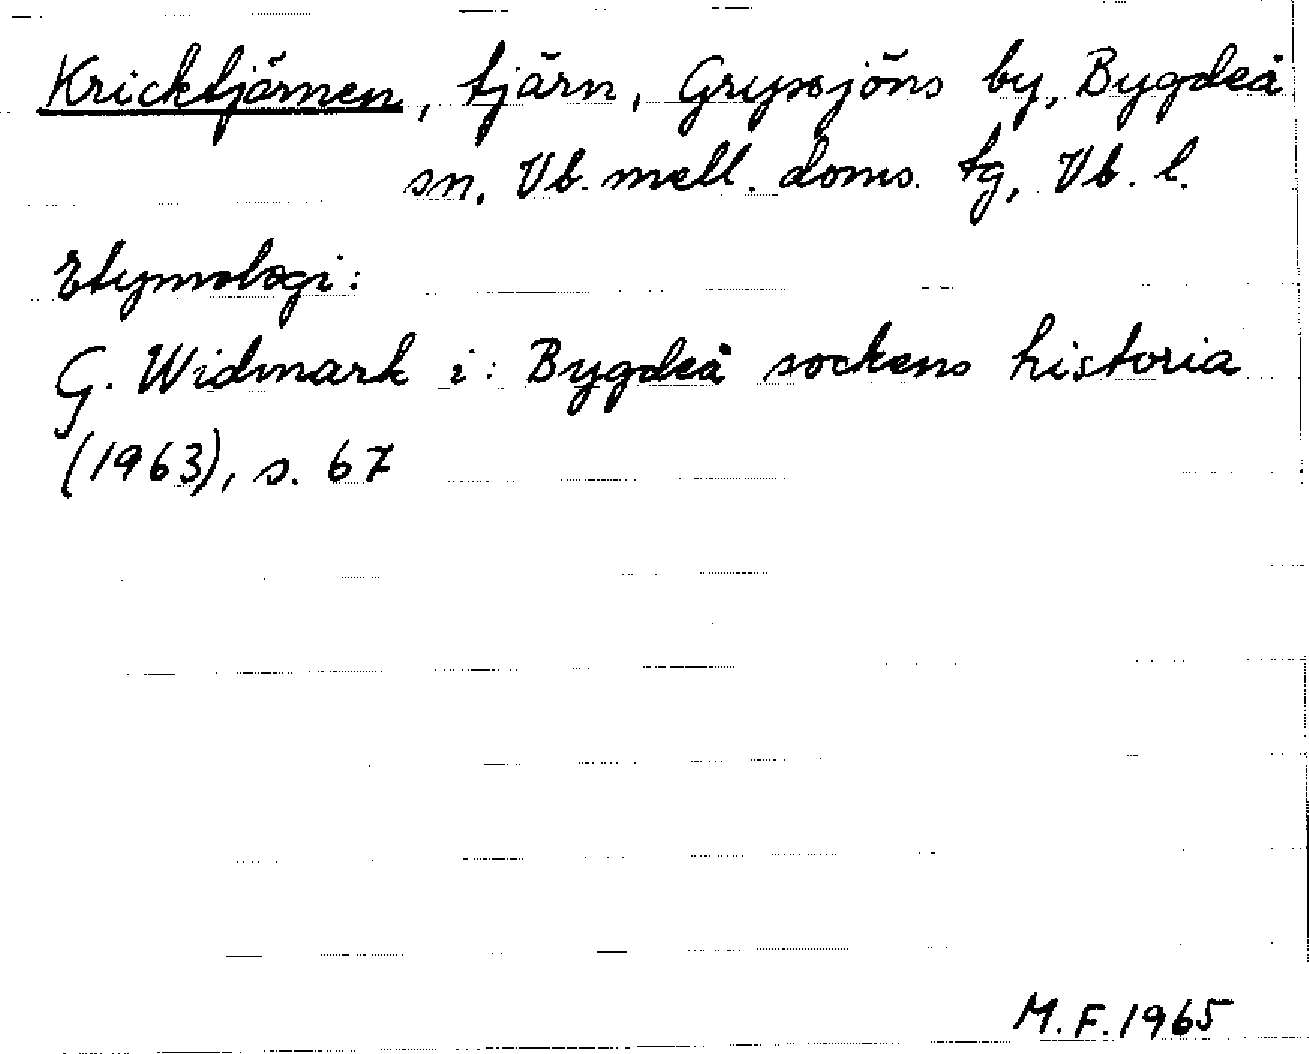 Kricktjärnen, tjärn, Gryssjöns by, Bygdeå
sn, Vb. mell. doms. tg, Vb. l.
Etymologi:
G. Widmark i: Bygdeå sockens historia
(1963), s. 67
M.F. 1965